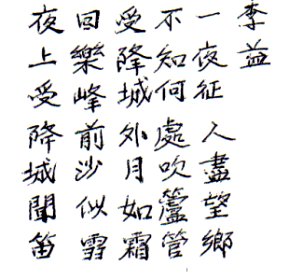 夜上受降城聞笛
回樂峰前沙似雪
受降城外月如霜
不知何處吹蘆管
一夜征人盡望鄉
李益